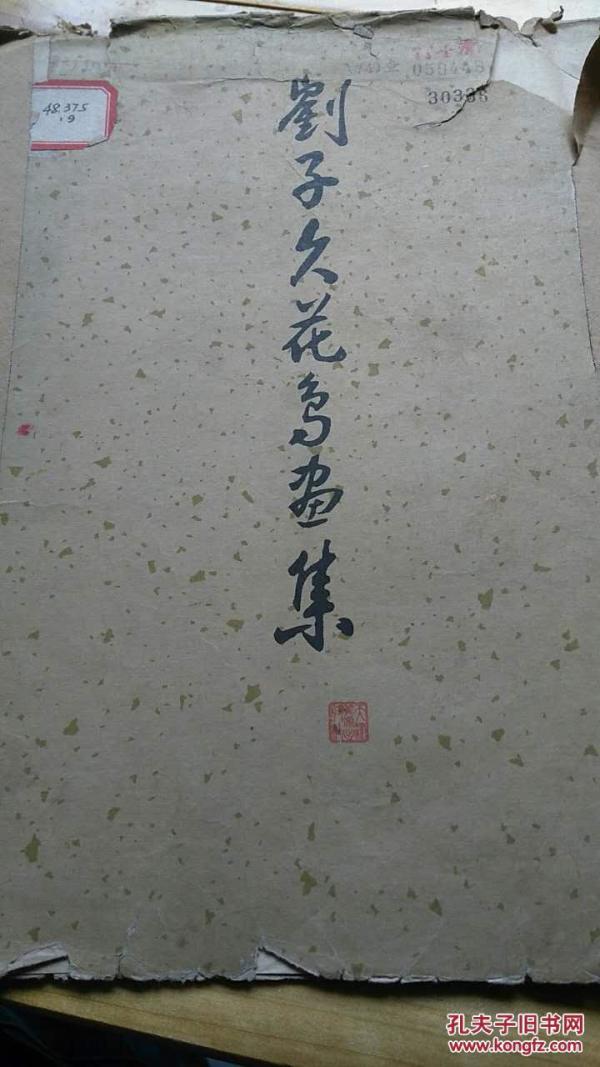 059448
30336
48.375
.9
劉子久花鳥畫集
孔夫子旧书网
www.kongfz.com